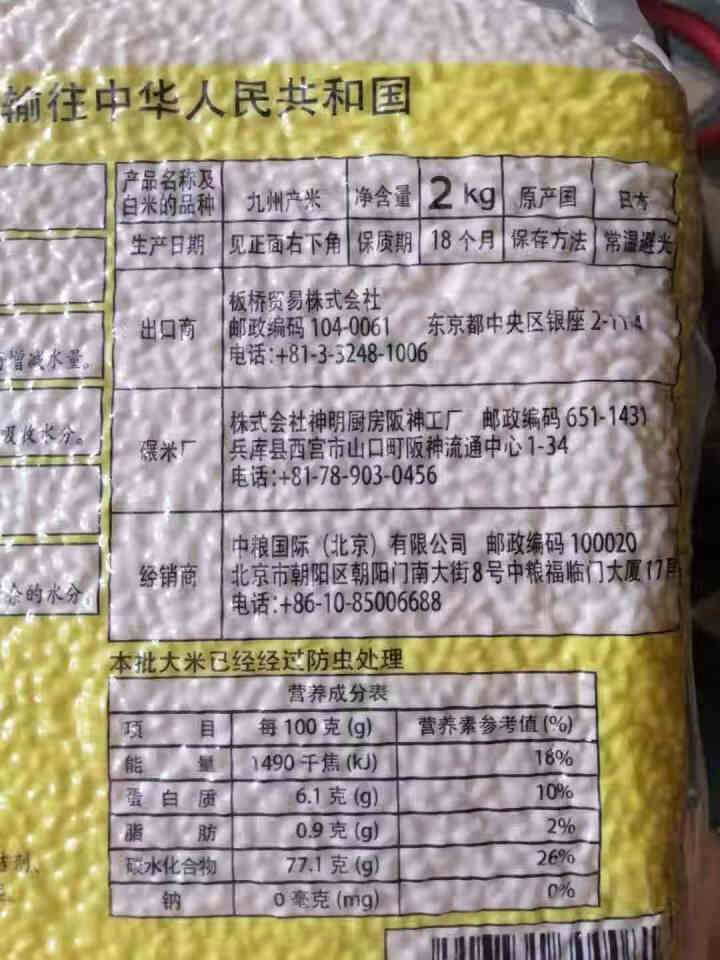 输往中华人民共和国
产品名称及
白米的品种
九州产米
净含量
2 kg
原产国
日本
生产日期
见正面右下角
保质期
18 个月
保存方法
常温避光
增减水量。
吸收水分。
余的水分
出口商
板桥贸易株式会社
邮政编码 104-0061 东京都中央区银座 2-11-4
电话:+81-3-3248-1006
碾米厂
株式会社神明厨房阪神工厂 邮政编码 651-1431
兵库县西宫市山口町阪神流通中心 1-34
电话:+81-78-903-0456
经销商
中粮国际（北京）有限公司 邮政编码 100020
北京市朝阳区朝阳门南大街 8 号中粮福临门大厦 17
电话:+86-10-85006688
本批大米已经经过防虫处理
营养成分表
项 目 每 100 克 (g) 营养素参考值 (%)
能 量 1490 千焦 (kJ) 18%
蛋 白 质 6.1 克 (g) 10%
脂 肪 0.9 克 (g) 2%
碳水化合物 77.1 克 (g) 26%
钠 0 毫克 (mg) 0%